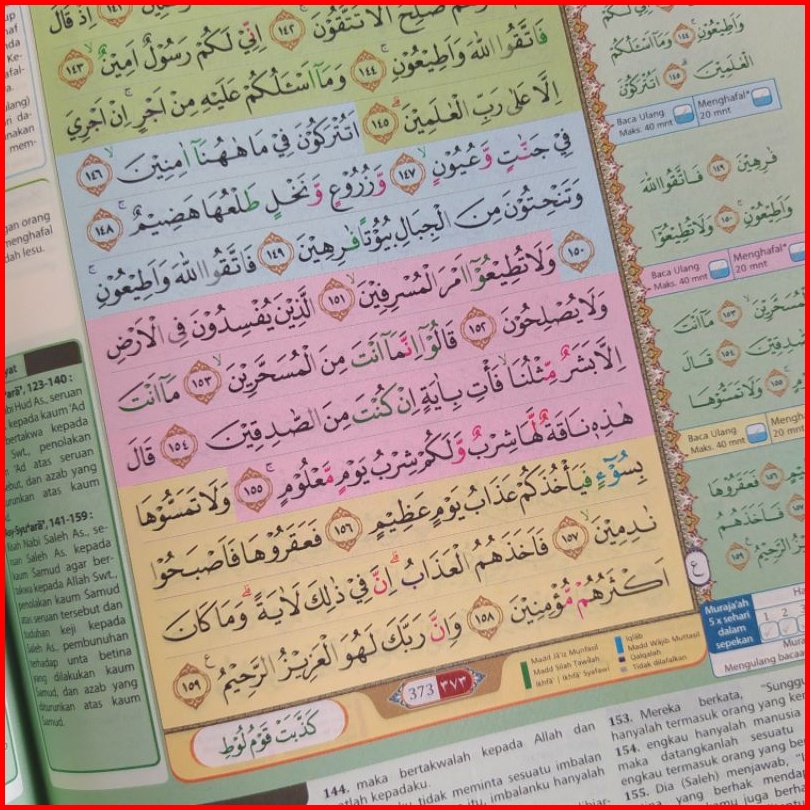 صٰلِحٌ اَلَا تَتَّقُوْنَ ١٤٢ اِنِّيْ لَكُمْ رَسُوْلٌ اَمِيْنٌ ١٤٣
فَاتَّقُوا اللّٰهَ وَاَطِيْعُوْنِ ١٤٤ وَمَآ اَسْـَٔلُكُمْ عَلَيْهِ مِنْ اَجْرٍ اِنْ اَجْرِيَ
اِلَّا عَلٰى رَبِّ الْعٰلَمِيْنَ ١٤٥ اَتُتْرَكُوْنَ فِيْ مَا هٰهُنَآ اٰمِنِيْنَ ١٤٦
فِيْ جَنّٰتٍ وَّعُيُوْنٍ ١٤٧ وَّزُرُوْعٍ وَّنَخْلٍ طَلْعُهَا هَضِيْمٌ ١٤٨
وَتَنْحِتُوْنَ مِنَ الْجِبَالِ بُيُوْتًا فٰرِهِيْنَ ١٤٩ فَاتَّقُوا اللّٰهَ وَاَطِيْعُوْنِ
١٥٠ وَلَا تُطِيْعُوْٓا اَمْرَ الْمُسْرِفِيْنَ ١٥١ الَّذِيْنَ يُفْسِدُوْنَ فِى الْاَرْضِ
وَلَا يُصْلِحُوْنَ ١٥٢ قَالُوْٓا اِنَّمَآ اَنْتَ مِنَ الْمُسَحَّرِيْنَ ١٥٣ مَآ اَنْتَ
اِلَّا بَشَرٌ مِّثْلُنَا فَأْتِ بِاٰيَةٍ اِنْ كُنْتَ مِنَ الصّٰدِقِيْنَ ١٥٤ قَالَ
هٰذِهٖ نَاقَةٌ لَّهَا شِرْبٌ وَّلَكُمْ شِرْبُ يَوْمٍ مَّعْلُوْمٍ ١٥٥ وَلَا تَمَسُّوْهَا
بِسُوْۤءٍ فَيَأْخُذَكُمْ عَذَابُ يَوْمٍ عَظِيْمٍ ١٥٦ فَعَقَرُوْهَا فَاَصْبَحُوْا
نٰدِمِيْنَ ١٥٧ فَاَخَذَهُمُ الْعَذَابُ اِنَّ فِيْ ذٰلِكَ لَاٰيَةً وَمَا كَانَ
اَكْثَرُهُمْ مُّؤْمِنِيْنَ ١٥٨ وَاِنَّ رَبَّكَ لَهُوَ الْعَزِيْزُ الرَّحِيْمُ ١٥٩
373 ٣٧٣
كَذَّبَتْ قَوْمُ لُوْطٍ
Madd Jā'iz Munfasil
Madd Silah Tawilah
Ikhfā' | Ikhfā' Syafawi
Iqlāb
Madd Wājib Muttasil
Qalqalah
Tidak dilafalkan
وَاَطِيْعُوْنِ ١٤٤ وَمَآ اَسْـَٔلُكُمْ
الْعٰلَمِيْنَ ١٤٥ اَتُتْرَكُوْنَ
Baca Ulang
Maks. 40 mnt
Menghafal*
20 mnt
فٰرِهِيْنَ ١٤٩ فَاتَّقُوا اللّٰهَ
وَاَطِيْعُوْنِ ١٥٠ وَلَا تُطِيْعُوْٓا
Baca Ulang
Maks. 40 mnt
Menghafal*
20 mnt
١٥٣ مَآ اَنْتَ
١٥٤ قَالَ
وَلَا تَمَسُّوْهَا
Baca Ulang
Maks. 40 mnt
20 mnt
١٥٦ فَعَقَرُوْهَا
فَاَخَذَهُمُ
الرَّحِيْمُ ١٥٩
Muraja'ah
5 x sehari
dalam
sepekan
1 2
Mengulang
123-140 :
Hud As., seruan
kepada kaum 'Ad
bertakwa kepada
Swt., penolakan
'Ad atas seruan
dan azab yang
atas kaum
141-159 :
Nabi Saleh As., se-
Saleh As. kepada
kaum Samud agar ber-
takwa kepada Allah Swt.,
penolakan kaum Samud
atas seruan tersebut dan
tuduhan keji kepada
Saleh As., pembunuhan
terhadap unta betina
yang dilakukan kaum
Samud, dan azab yang
diturunkan atas kaum
Samud.
144. maka bertakwalah kepada Allah dan
kepadaku.
tidak meminta sesuatu imbalan
imbalanku hanyalah
153. Mereka berkata,
hanyalah termasuk orang yang
154. engkau hanyalah manusia
maka datangkanlah sesuatu
engkau termasuk orang yang
155. Dia (Saleh) menjawab,
yang berhak